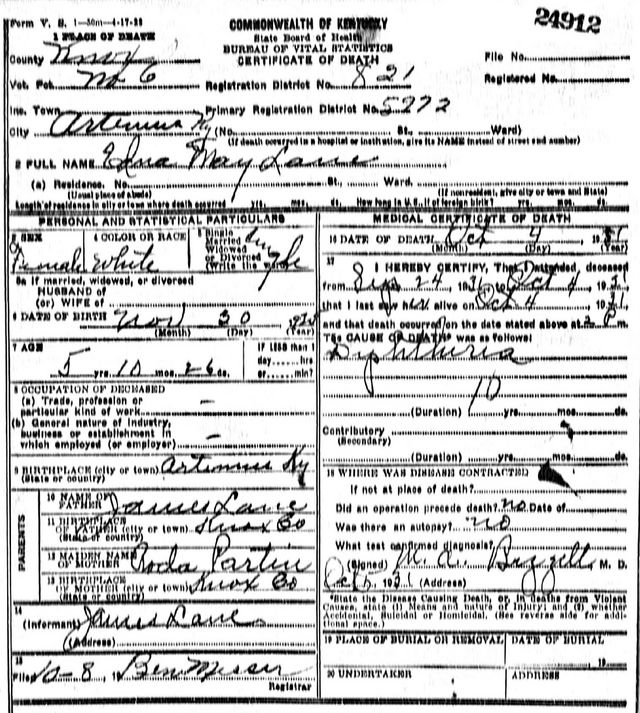 Form V. S. 1-50m-4-17-29
24912
COMMONWEALTH OF KENTUCKY
State Board of Health
BUREAU OF VITAL STATISTICS
CERTIFICATE OF DEATH
1 PLACE OF DEATH
County Knox
File No.
Vot. Pct. No 6
Registration District No. 821
Registered No.
Inc. Town
Primary Registration District No. 5372
City Artemus Ky (No. St., Ward)
(If death occurred in a hospital or institution, give its NAME instead of street and number)
2 FULL NAME Edna May Lane
(a) Residence. No. St., Ward.
(Usual place of abode) (If nonresident, give city or town and State)
Length of residence in city or town where death occurred yrs. mos. ds. How long in U. S., if of foreign birth? yrs. mos. ds.
PERSONAL AND STATISTICAL PARTICULARS
3 SEX Female
4 COLOR OR RACE White
5 Single Married Widowed or Divorced (Write the word) Single
5a If married, widowed, or divorced
HUSBAND of
(or) WIFE of
6 DATE OF BIRTH Nov 30
(Month) (Day) (Year)
7 AGE
5 yrs. 10 mos. 26 ds.
IF LESS than 1
day hrs.
or min?
8 OCCUPATION OF DECEASED
(a) Trade, profession or
particular kind of work -
(b) General nature of industry,
business or establishment in
which employed (or employer) -
9 BIRTHPLACE (city or town) Artemus Ky
(State or country)
PARENTS
10 NAME OF FATHER James Lane
11 BIRTHPLACE OF FATHER (city or town) Knox Co
(State or country)
12 MAIDEN NAME OF MOTHER Roda Partin
13 BIRTHPLACE OF MOTHER (city or town) Knox Co
(State or country)
14
(Informant) James Lane
(Address)
15
Filed 10-8, 19 Ben Messer
Registrar
MEDICAL CERTIFICATE OF DEATH
16 DATE OF DEATH Oct 4 1931
(Month) (Day) (Year)
17 I HEREBY CERTIFY, That I attended deceased
from Sep 24 1931, to Oct 4 1931,
that I last saw her alive on Oct 4 1931,
and that death occurred on the date stated above at 2 P m.
The CAUSE OF DEATH* was as follows:
Diphtheria
10
(Duration) yrs. mos. ds.
Contributory
(Secondary)
(Duration) yrs. mos. ds.
18 WHERE WAS DISEASE CONTRACTED
if not at place of death?
Did an operation precede death? no Date of
Was there an autopsy? no
What test confirmed diagnosis?
(Signed) M. D.
Oct 1931 (Address)
*State the Disease Causing Death, or, in Deaths from Violent
Causes, state (1) Means and nature of Injury; and (2), whether
Accidental, Suicidal or Homicidal. (See reverse side for addi-
tional space.)
19 PLACE OF BURIAL OR REMOVAL
DATE OF BURIAL
19
20 UNDERTAKER
ADDRESS